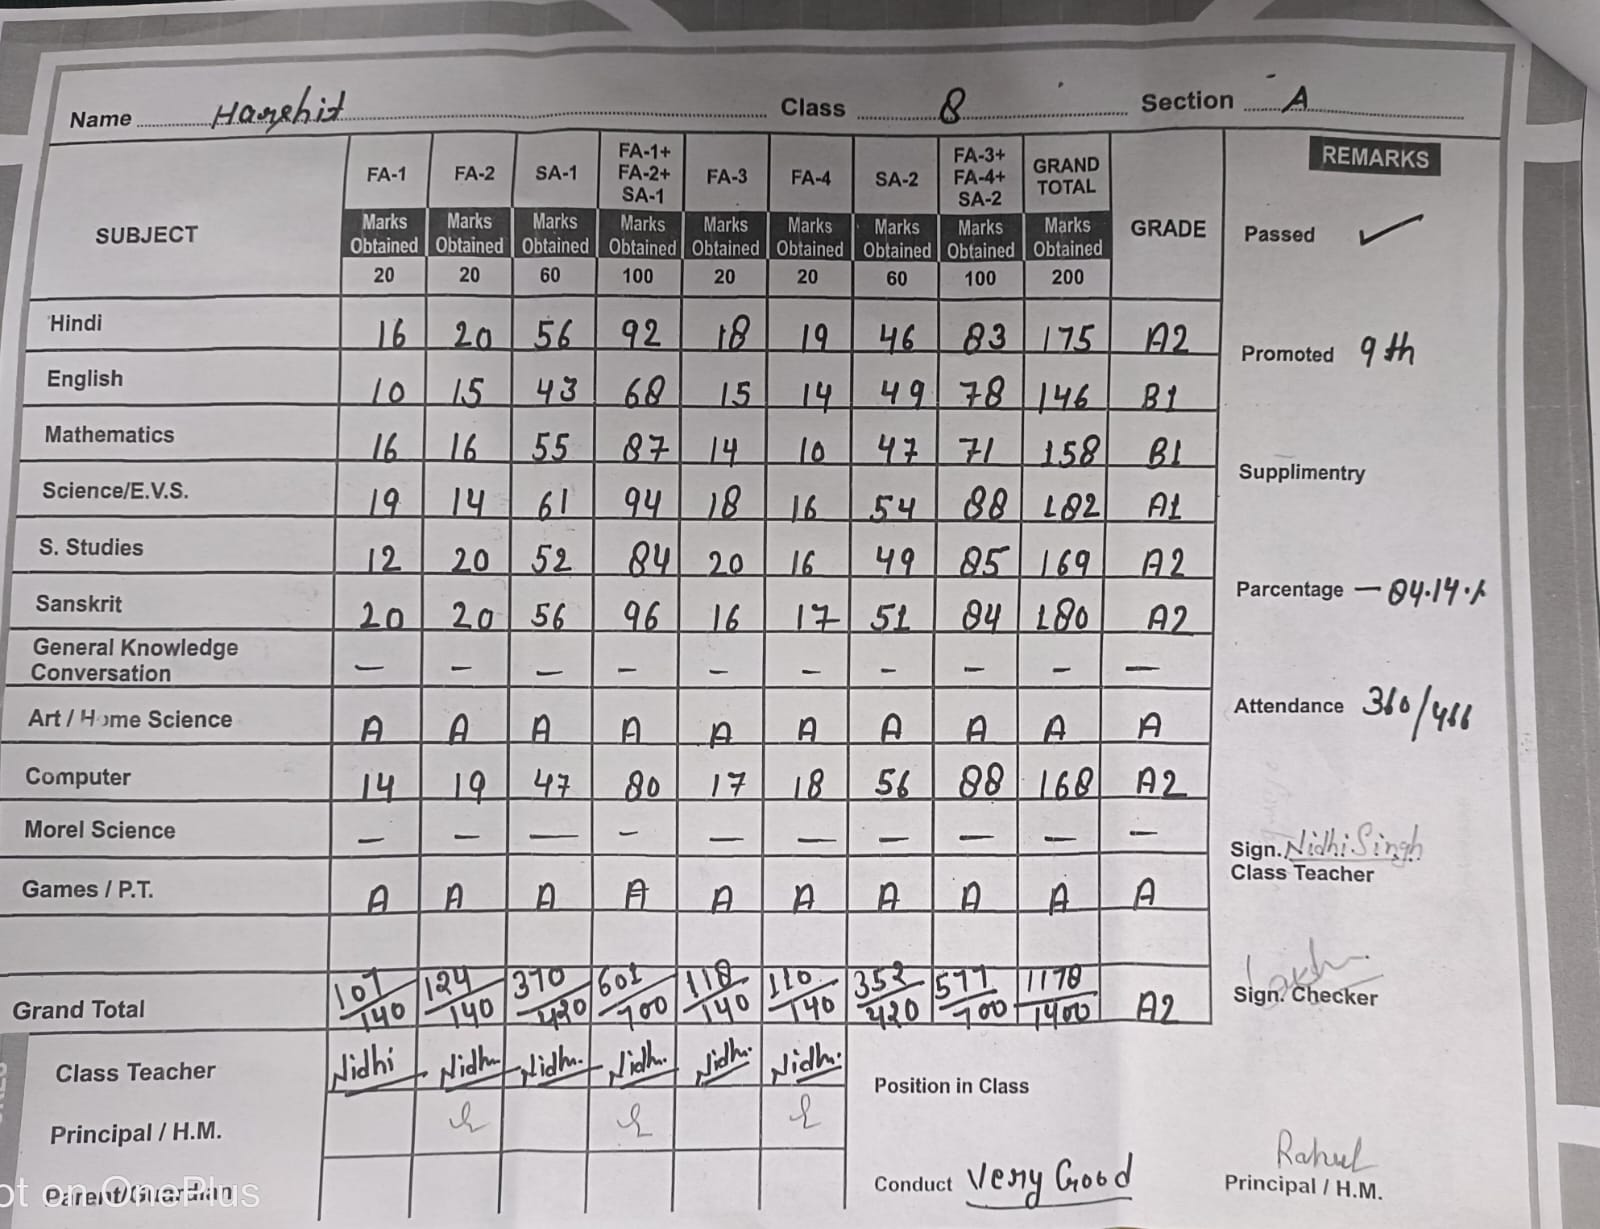 Name Harshit Class 8 Section A
SUBJECT FA-1 FA-2 SA-1 FA-1+ FA-2+ SA-1 FA-3 FA-4 SA-2 FA-3+ FA-4+ SA-2 GRAND TOTAL GRADE REMARKS
Marks Obtained Marks Obtained Marks Obtained Marks Obtained Marks Obtained Marks Obtained Marks Obtained Marks Obtained Marks Obtained
20 20 60 100 20 20 60 100 200
Passed ✓
Hindi 16 20 56 92 18 19 46 83 175 A2
Promoted 9th
English 10 15 43 68 15 14 49 78 146 B1
Mathematics 16 16 55 87 14 10 47 71 158 B1
Supplimentry
Science/E.V.S. 19 14 61 94 18 16 54 88 182 A1
S. Studies 12 20 52 84 20 16 49 85 169 A2
Parcentage — 84.14%
Sanskrit 20 20 56 96 16 17 51 84 180 A2
General Knowledge
Conversation — — — — — — — — — —
Art / Home Science A A A A A A A A A A
Attendance 360/466
Computer 14 19 47 80 17 18 56 88 168 A2
Morel Science — — — — — — — — — —
Sign. Nidhi Singh
Class Teacher
Games / P.T. A A A A A A A A A A
Grand Total 107/140 124/140 370/420 601/700 118/140 110/140 352/420 577/700 1178/1400 A2
Sign. Checker
Class Teacher Nidhi Nidhi Nidhi Nidhi Nidhi Nidhi
Position in Class
Principal / H.M.
Conduct Very Good
Rahul
Principal / H.M.
Parent/Guardian
ot on OnePlus